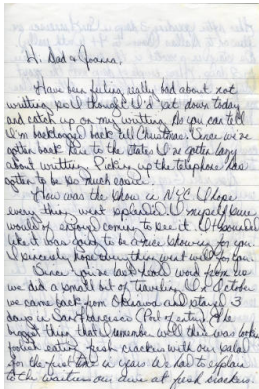 Hi Dad & Joanna,
Have been feeling really bad about not
writting so I thought I'd set down today
and catch up on my writting. As you can tell
I'm backlogged back till Christmas. Since we've
gotten back to the states I've gotten lazy
about writting. Picking up the telephone has
gotten to be so much easier.
How was the show in NYC. I hope
every thing went splended. I myself sure
would of enjoyed coming to see it. It sounded
like it was going to be a nice showing for you.
I sincerly hope everything went well for you.
Since you've last heard word from us
we did a small bit of traveling. In October
we came back from and stayed 3
days in San Francisco (Port of entry). The
biggest thing that I remember well this was
eating fresh crackers with our salad
for the first time in years. We had to explain
to the waitress our desire at fresh crackers.